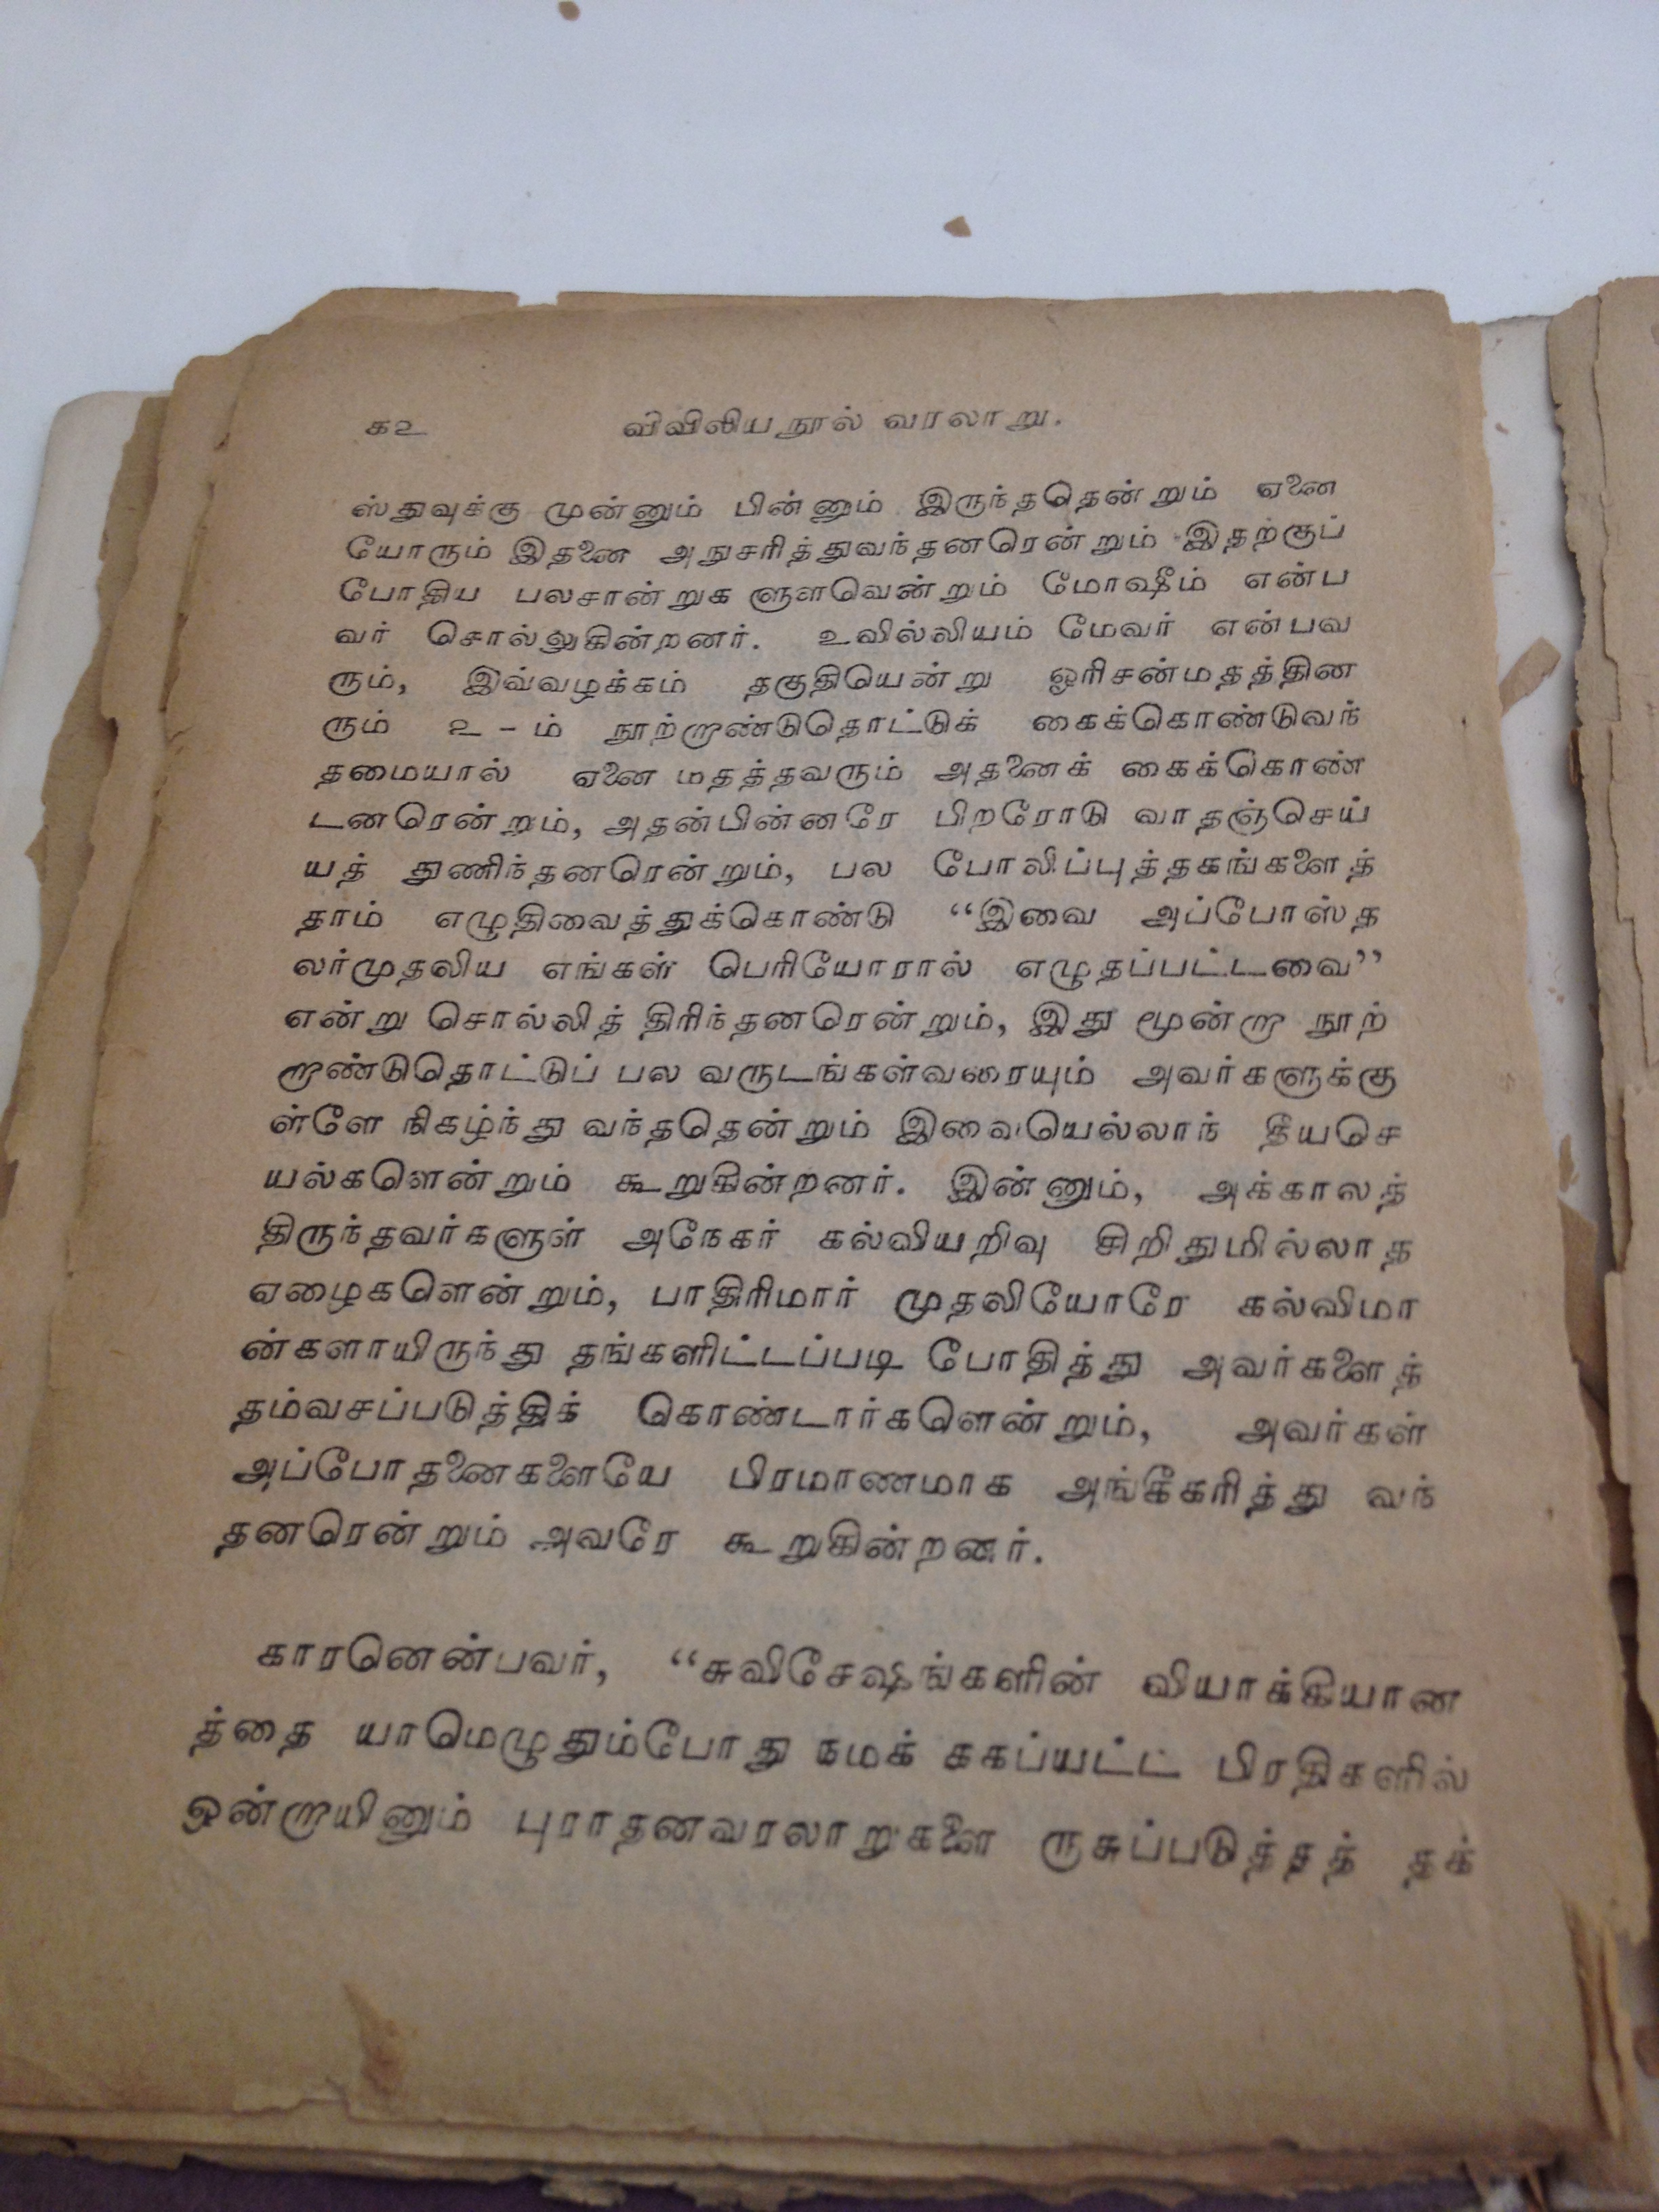 க௨ விவிலியநூல் வரலாறு.
ஸ்துவுக்கு முன்னும் பின்னும் இருந்ததென்றும் ஏனை
யோரும் இதனை அநுசரித்துவந்தனரென்றும் இதற்குப்
போதிய பலசான்றுக ளுளவென்றும் மோஷீம் என்ப
வர் சொல்லுகின்றனர். உவில்லியம் மேவர் என்பவ
ரும், இவ்வழக்கம் தகுதியென்று ஓரிசன்மதத்தின
ரும் ௨-ம் நூற்றாண்டுதொட்டுக் கைக்கொண்டுவந்
தமையால் ஏனை மதத்தவரும் அதனைக் கைக்கொண்
டனரென்றும், அதன்பின்னரே பிறரோடு வாதஞ்செய்
யத் துணிந்தனரென்றும், பல போலிப்புத்தகங்களைத்
தாம் எழுதிவைத்துக்கொண்டு “இவை அப்போஸ்த
லர்முதலிய எங்கள் பெரியோரால் எழுதப்பட்டவை”
என்று சொல்லித் திரிந்தனரென்றும், இது மூன்றா நூற்
றாண்டுதொட்டுப் பல வருடங்கள்வரையும் அவர்களுக்கு
ள்ளே நிகழ்ந்து வந்ததென்றும் இவையெல்லாந் தீயசெ
யல்களென்றும் கூறுகின்றனர். இன்னும், அக்காலத்
திருந்தவர்களுள் அநேகர் கல்வியறிவு சிறிதுமில்லாத
ஏழைகளென்றும், பாதிரிமார் முதலியோரே கல்விமா
ன்களாயிருந்து தங்களிட்டப்படி போதித்து அவர்களைத்
தம்வசப்படுத்திக் கொண்டார்களென்றும், அவர்கள்
அப்போதனைகளையே பிரமாணமாக அங்கீகரித்து வந்
தனரென்றும் அவரே கூறுகின்றனர்.
காரனென்பவர், “சுவிசேஷங்களின் வியாக்கியான
த்தை யாமெழுதும்போது நமக் ககப்யட்ட பிரதிகளில்
ஒன்றாயினும் புராதனவரலாறுகளை ருசுப்படுத்தத் தக்